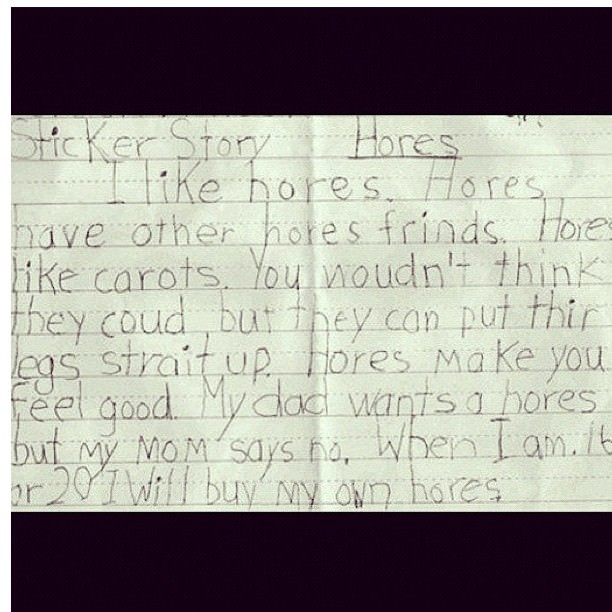 Sticker Story Hores
I like hores. Hores
have other hores frinds. Hores
like carots. You woudn't think
they coud but they can put thir
legs strait up. Hores make you
feel good. My dad wants a hores
but my mom says no. When I am. 16
or 20 I will buy my own hores